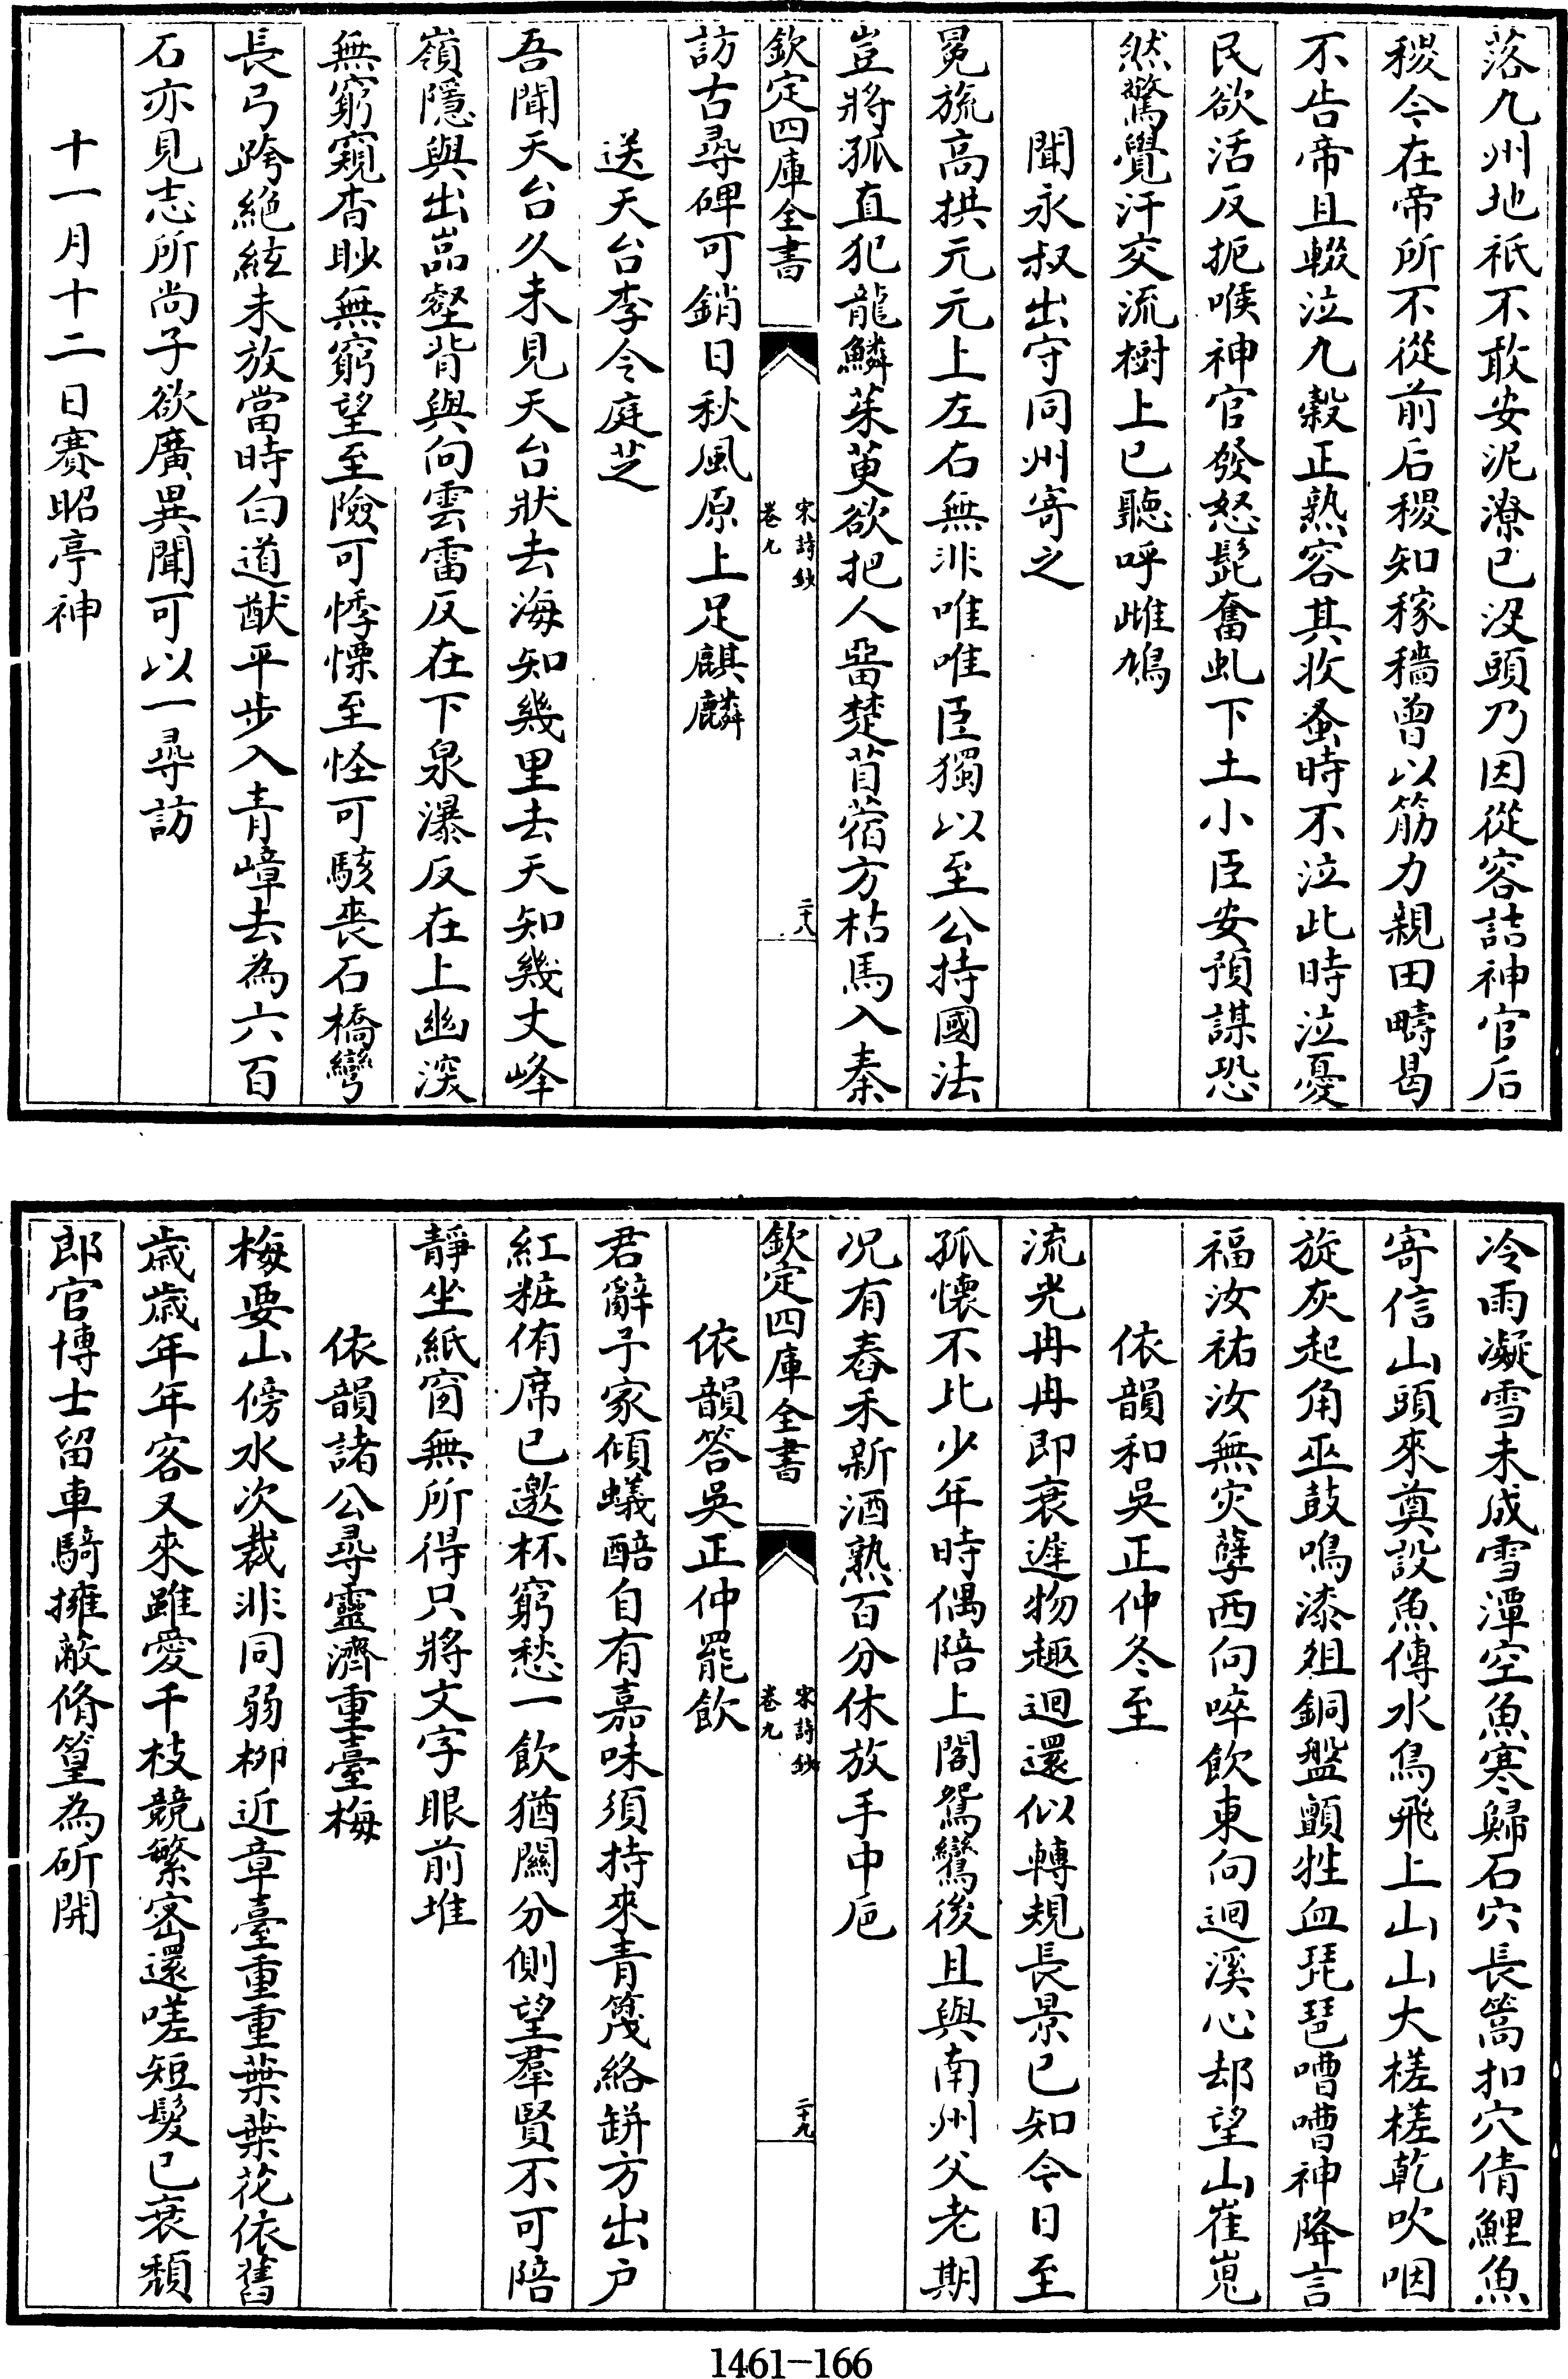 落九州地祇不敢安泥潦已没頭乃因從容詰神官后
稷今在帝所不從前后稷知稼穡曾以筋力親田疇曷
不告帝且輟泣九穀正熟容其收蚤時不泣此時泣憂
民欲活反扼喉神官發怒髭奮虬下土小臣安預謀恐
然驚覺汗交流樹上已聽呼雌鳩
聞永叔出守同州寄之
冕旒高拱元元上左右無非唯唯臣獨以至公持國法
豈將孤直犯龍鱗茱萸欲把人留楚苜蓿方枯馬入秦
欽定四庫全書
宋詩鈔
卷九
二十八
訪古尋碑可銷日秋風原上足麒麟
送天台李令庭芝
吾聞天台久未見天台狀去海知幾里去天知幾丈峰
嶺隱與出嵓壑背與向雲雷反在下泉瀑反在上幽深
無窮窺杳眇無窮望至險可悸慄至怪可駭喪石橋彎
長弓跨絶絃未放當時白道猷平步入青嶂去為六百
石亦見志所尚子欲廣異聞可以一尋訪
十一月十二日賽昭亭神
冷雨凝雪未成雪潭空魚寒歸石穴長篙扣穴倩鯉魚
寄信山頭來奠設魚傳水鳥飛上山山大槎槎乾吹咽
旋灰起角巫鼓鳴漆俎銅盤顫牲血琵琶嘈嘈神降言
福汝祐汝無灾孽西向啐飲東向迴溪心却望山崔嵬
依韻和吳正仲冬至
流光冉冉即衰遲物趣迴還似轉規長景已知今日至
孤懷不比少年時偶陪上閣鴛鸞後且與南州父老期
况有舂禾新酒熟百分休放手中巵
欽定四庫全書
宋詩鈔
卷九
二十九
依韻答吳正仲罷飲
君辭子家傾蟻醅自有嘉味須持來青篾絡缾方出户
紅粧侑席已邀杯窮愁一飲猶闗分側望羣賢不可陪
靜坐紙窗無所得只將文字眼前堆
依韻諸公尋靈濟重臺梅
梅要山傍水次裁非同弱柳近章臺重重葉葉花依舊
歲歲年年客又來雖愛千枝競繁密還嗟短髮已衰頹
郎官博士留車騎擁蔽脩篁為斫開
1461-166